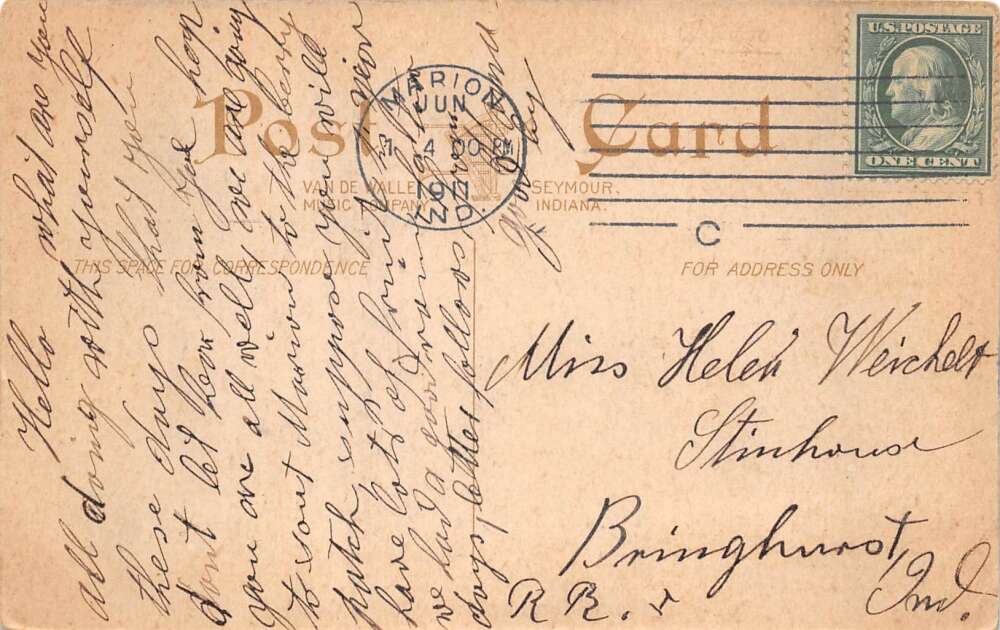 Post Card
MARION
JUN
4 00 PM
1911
IND.
U.S. POSTAGE
ONE CENT
VAN DE WALLE
MUSIC COMPANY
SEYMOUR,
INDIANA.
C
THIS SPACE FOR CORRESPONDENCE
FOR ADDRESS ONLY
Hello what are you
all doing with yourself
these days that you
dont let how from you hop
you are all well we are going
to sout Marion to the berry
patch suppose you will
have lots of fruit this year
we had a good rain
days, letter follows,
good by
Miss Helen Weichelt
Stinhouse
Bringhurst,
R R. Ind.